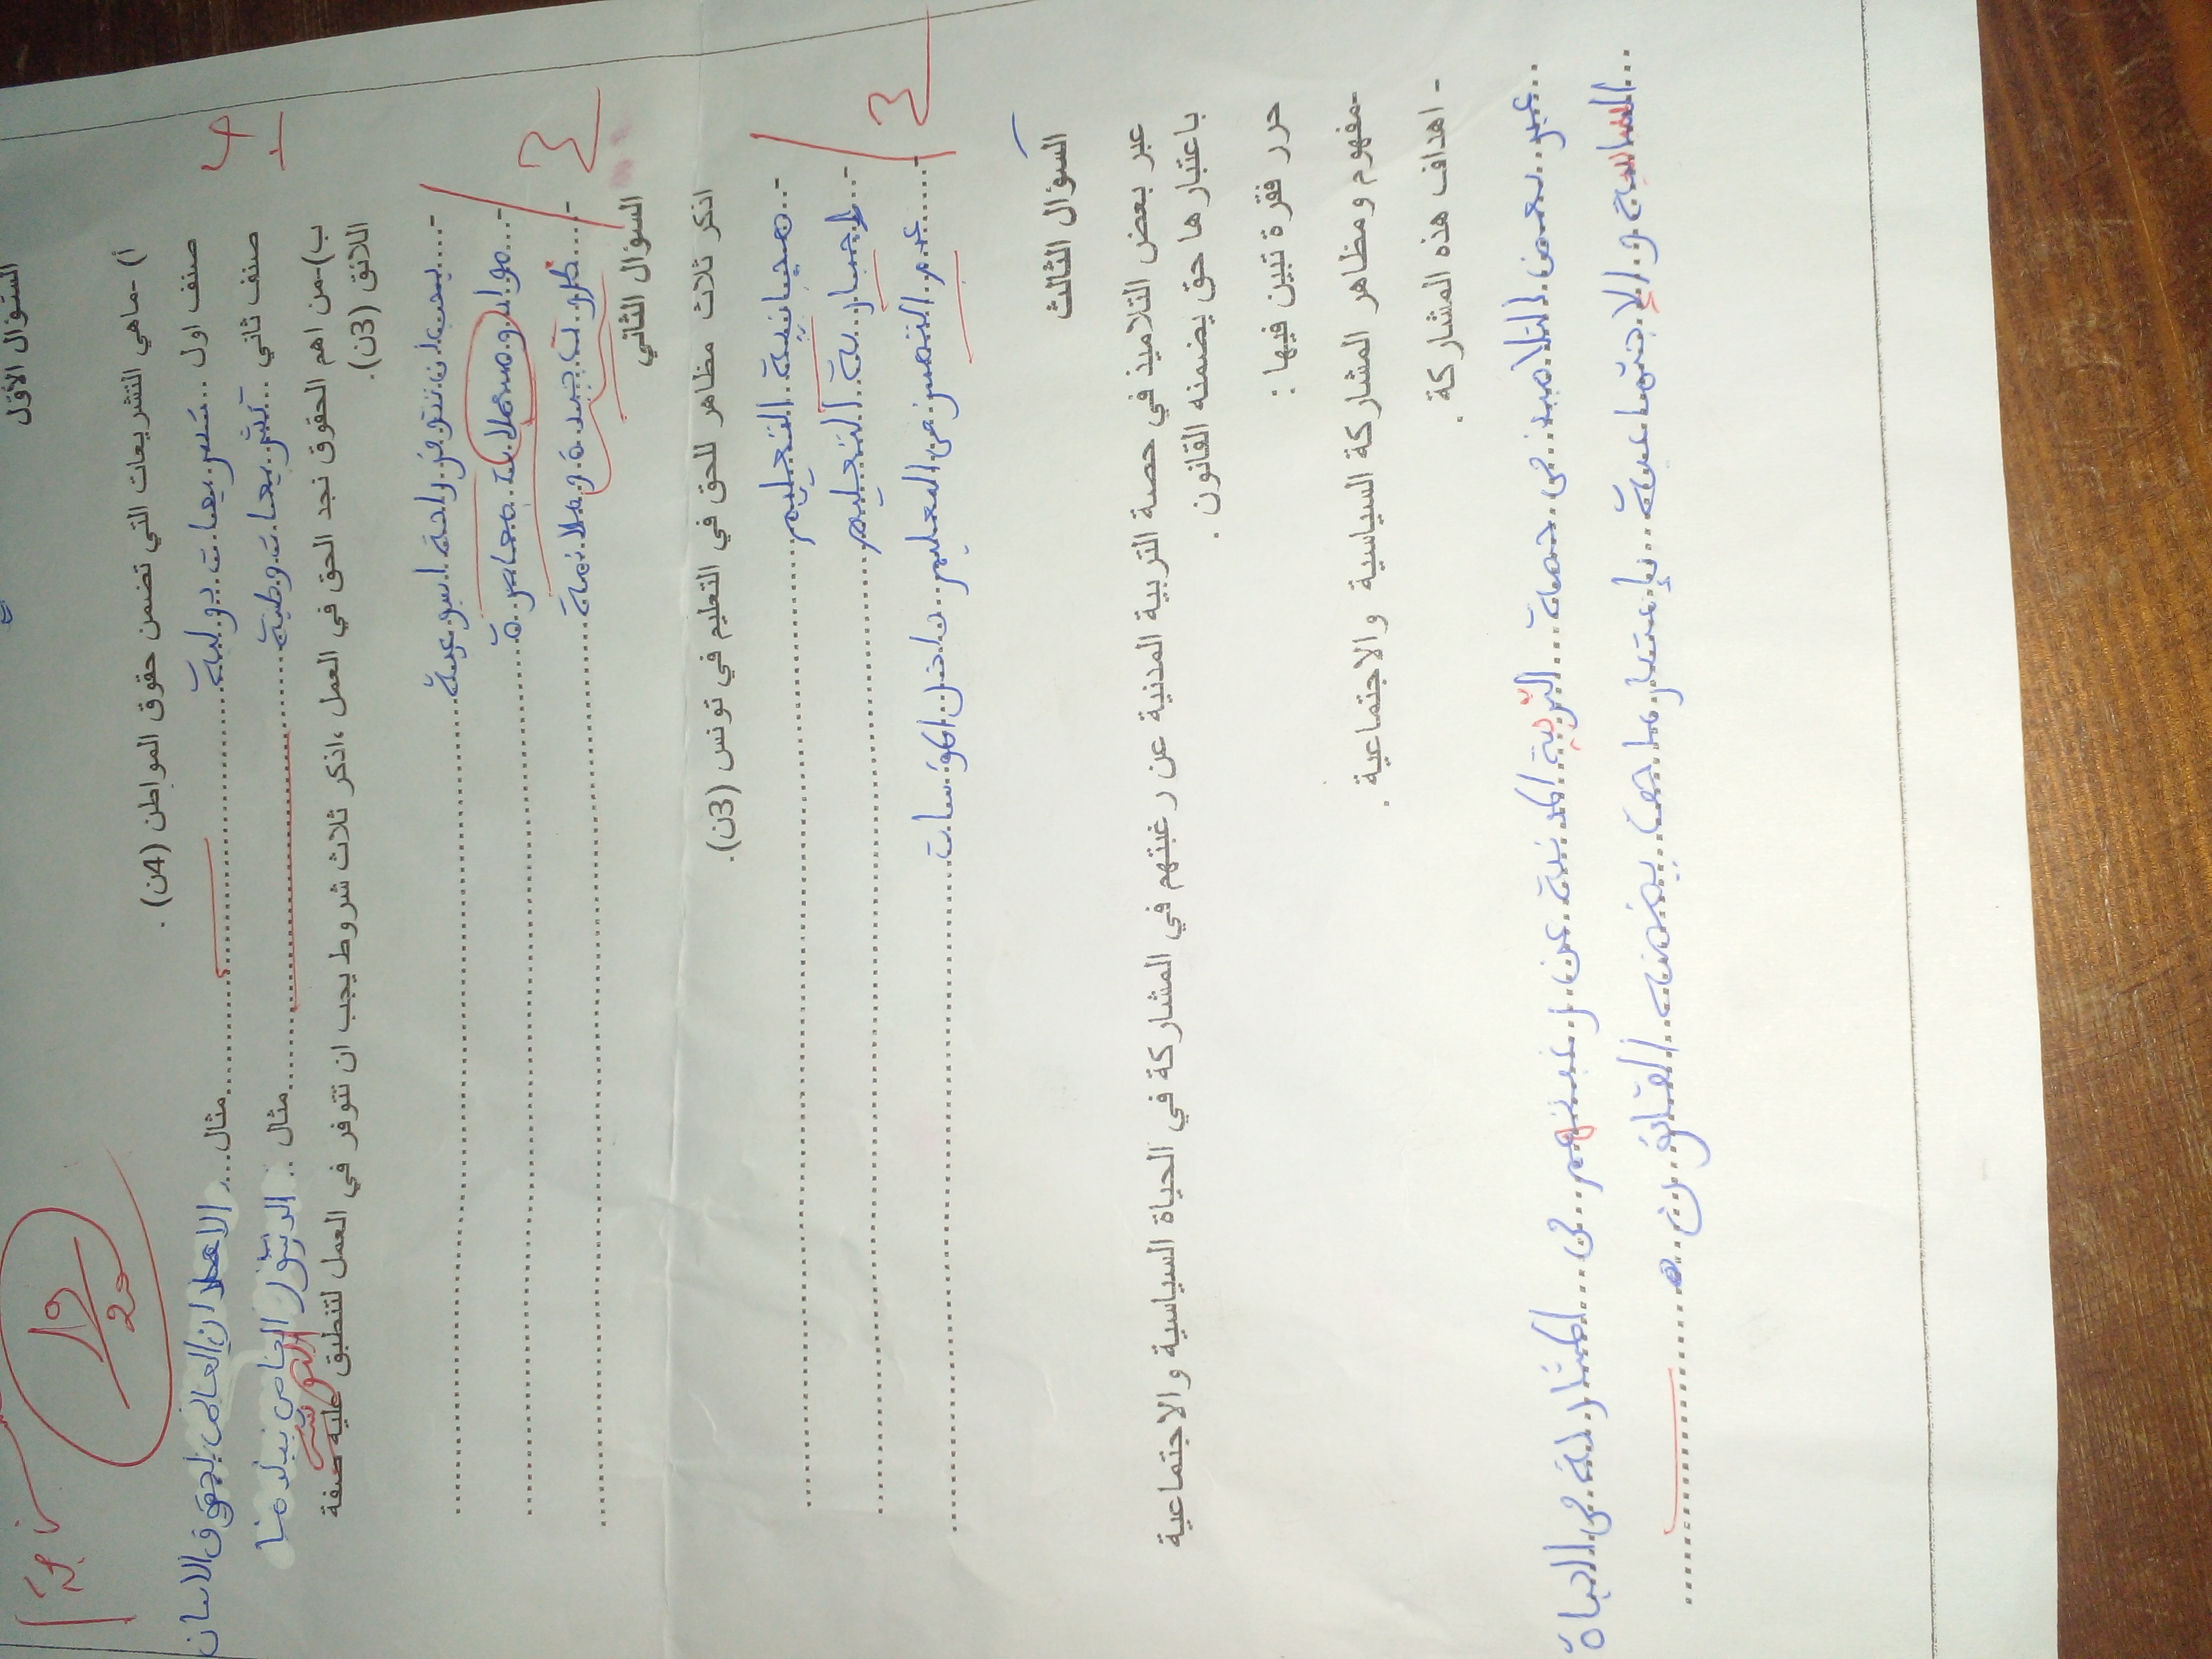 السؤال الأول
19
20
أ)-ماهي التشريعات التي تضمن حقوق المواطن (4ن).
4
صنف اول ...تشريعات دولية...مثال...الاعلان العالمي لحقوق الانسان
صنف ثاني ...تشريعات وطنية...مثال... الدستور الخاص ببلدنا
التونسي
ب)-من اهم الحقوق نجد الحق في العمل ،اذكر ثلاث شروط يجب ان تتوفر في العمل لتنطبق عليه صفة
اللائق (3ن).
-...يجب ان تتوفر راحة اسبوعية...
-...موارد و صملاية معاصرة...
-...ظروف جيدة و ملائمة...
3
السؤال الثاني
اذكر ثلاث مظاهر للحق في التعليم في تونس (3ن).
-...مجانية التعليم...
-...إجبارية التعليم...
-...عدم التميز في التعليم داخل المؤسسات...
3
السؤال الثالث
عبر بعض التلاميذ في حصة التربية المدنية عن رغبتهم في المشاركة في الحياة السياسية والاجتماعية
باعتبارها حق يضمنه القانون.
حرر فقرة تبين فيها :
-مفهوم ومظاهر المشاركة السياسية والاجتماعية.
- اهداف هذه المشاركة.
...عبر بعض التلاميذ في حصة التربية المدنية عن رغبتهم في المشاركة في الحياة
...السياسية و الإجتماعية بإعتبارها حق يضمنه القانون...